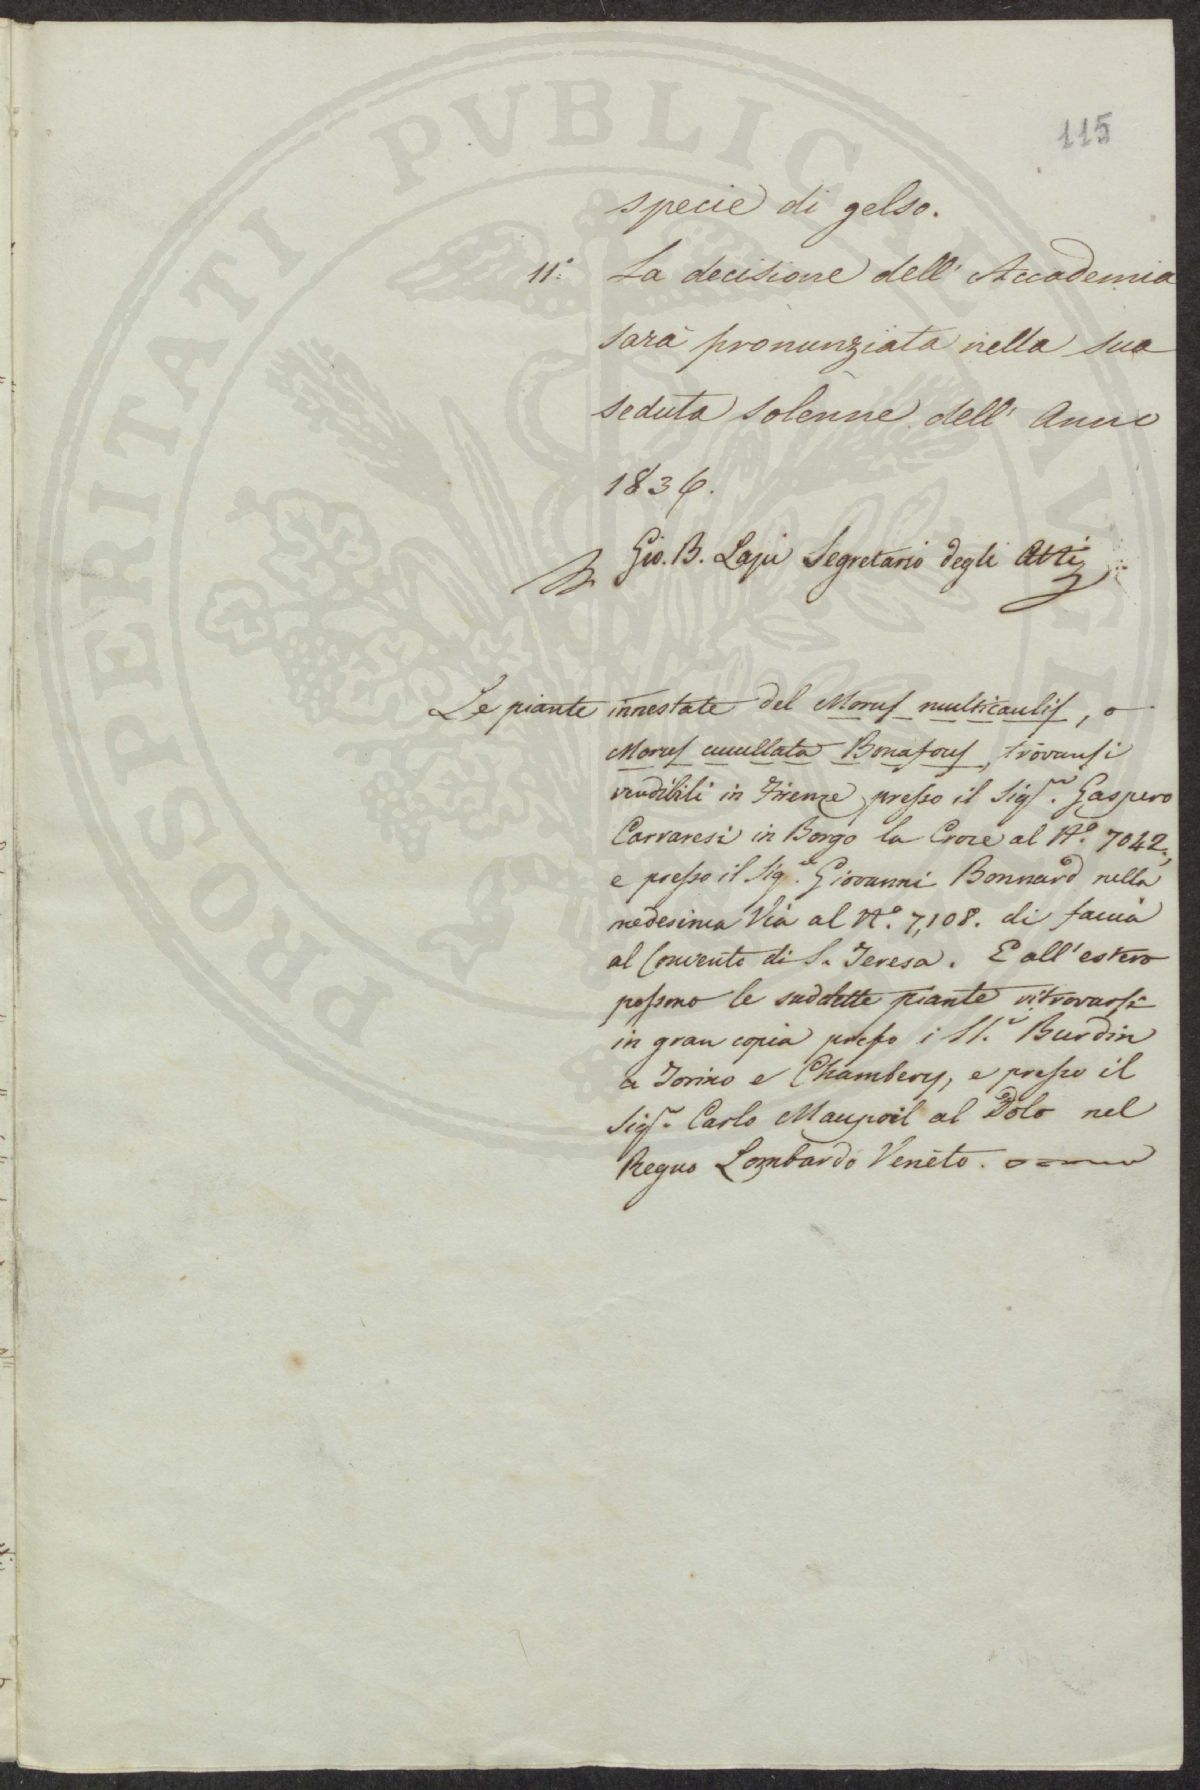 115
specie di gelso.
11.° La decisione dell' Accademia
sarà pronunziata nella sua
seduta solenne dell' Anno
1836.
Gio. B. Lapi Segretario degli Atti
Le piante innestate del Morus multicaulis, o
Morus cucullata Bonafous, trovansi
vendibili in Firenze presso il Sigr. Gaspero
Carraresi in Borgo la Croce al N.° 7042.,
e presso il Sigr. Giovanni Bonnard nella
medesima Via al N.° 7,108. di faccia
al Convento di S. Teresa. E all'estero
possono le suddette piante ritrovarsi
in gran copia presso i SS.ri Burdin
a Torino e Chambery, e presso il
Sigr. Carlo Maupoil al Dolo nel
Regno Lombardo Veneto.
PROSPERITATI PVBLICAE AVGENDAE